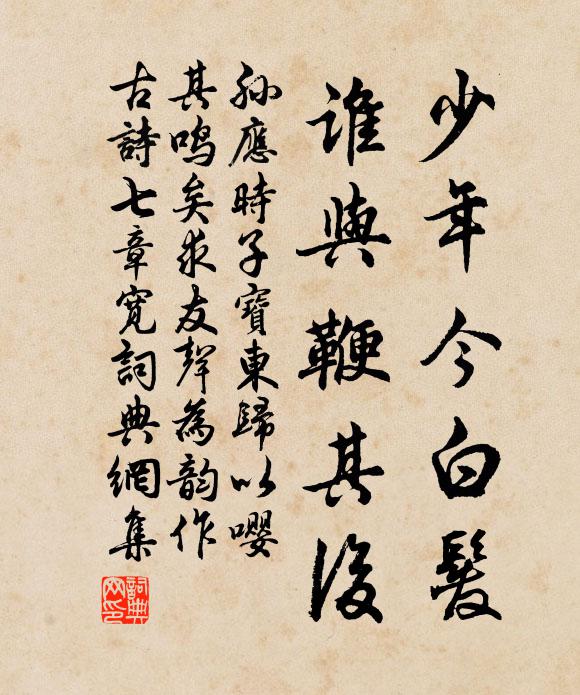 少年今白髮
誰與鞭其後
孫應時子寶東歸以嚶
其鳴矣求友聲為韵作
古詩七章寬詞典網集
詞典
网印